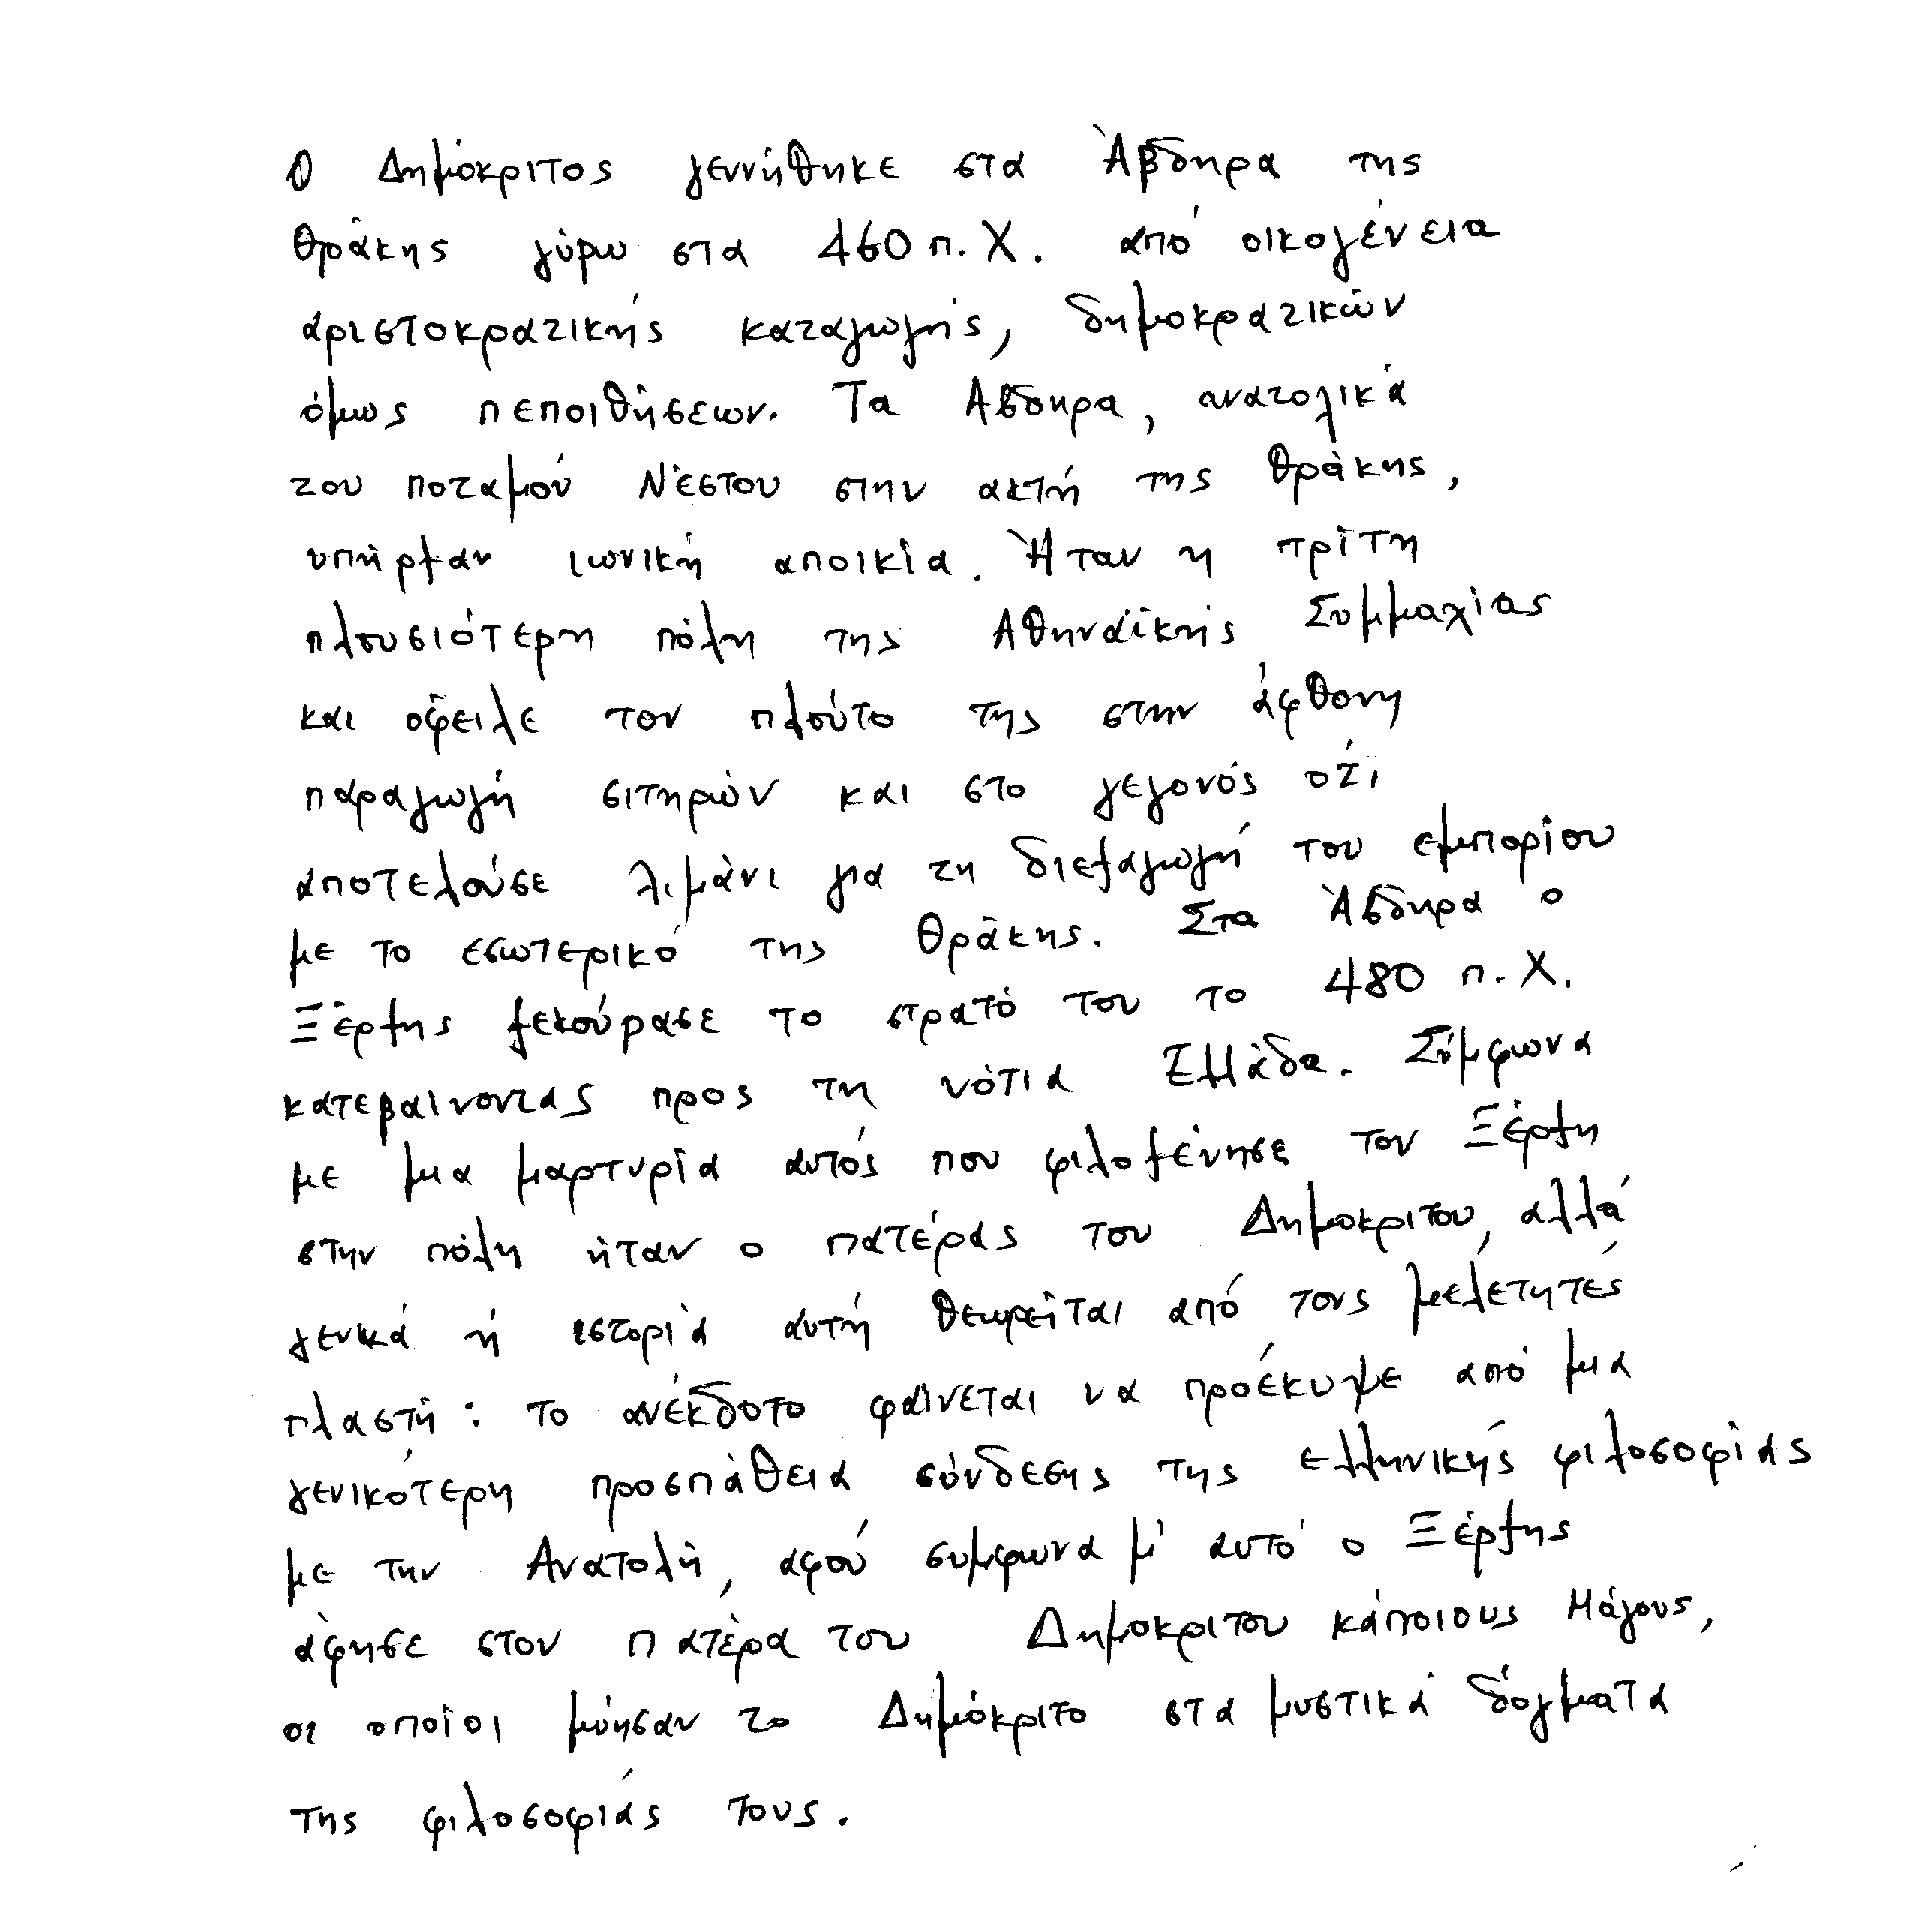 Ο Δημόκριτος γεννήθηκε στα Άβδηρα της
Θράκης γύρω στα 460 π.Χ. από οικογένεια
αριστοκρατικής καταγωγής, δημοκρατικών
όμως πεποιθήσεων. Τα Άβδηρα, ανατολικά
του ποταμού Νέστου στην ακτή της Θράκης,
υπήρξαν ιωνική αποικία. Ήταν η τρίτη
πλουσιότερη πόλη της Αθηναϊκής Συμμαχίας
και όφειλε τον πλούτο της στην άφθονη
παραγωγή σιτηρών και στο γεγονός ότι
αποτελούσε λιμάνι για τη διεξαγωγή του εμπορίου
με το εσωτερικό της Θράκης. Στα Άβδηρα ο
Ξέρξης ξεκούρασε το στρατό του το 480 π.Χ.
κατεβαίνοντας προς τη νότια Ελλάδα. Σύμφωνα
με μια μαρτυρία αυτός που φιλοξένησε τον Ξέρξη
στην πόλη ήταν ο πατέρας του Δημοκρίτου, αλλά
γενικά ή ιστορία αυτή θεωρείται από τους μελετητές
πλαστή: το ανέκδοτο φαίνεται να προέκυψε από μια
γενικότερη προσπάθεια σύνδεσης της ελληνικής φιλοσοφίας
με την Ανατολή, αφού συμφωνα μ' αυτό ο Ξέρξης
άφησε στον πατέρα του Δημοκριτου κάποιους Μάγους,
οι οποίοι μύησαν το Δημόκριτο στα μυστικά δόγματα
της φιλοσοφίας τους.